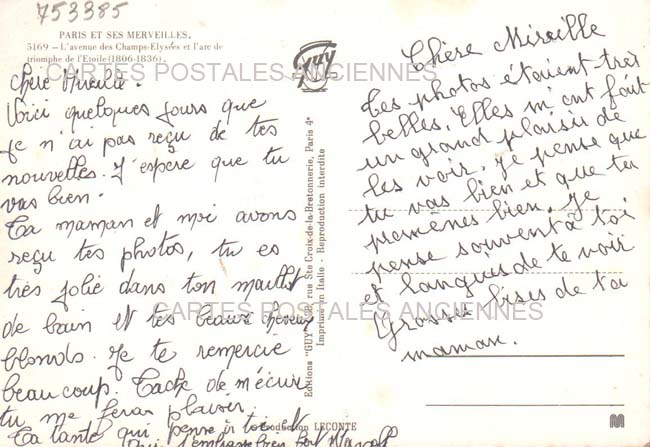 753385
PARIS ET SES MERVEILLES.
5169 - L'avenue des Champs-Elysées et l'arc de
triomphe de l'Etoile (1806-1836).
CARTES POSTALES ANCIENNES
Chère Mireille.
Voici quelques jours que
je n'ai pas reçu de tes
nouvelles. J'espère que tu
vas bien.
Ta maman et moi avons
reçu tes photos, tu es
très jolie dans ton maillot
de bain et tes beaux cheveux
blonds. Je te remercie
beaucoup. Tache de m'écrire
tu me feras plaisir.
Ta tante qui pense à toi et
qui t'embrasse bien fort
GUY
Editions "GUY" rue Ste Croix-de-la-Bretonnerie, Paris 4e
Imprimé en Italie - Reproduction interdite
Chère Mireille
Tes photos étaient très
belles. Elles m'ont fait
un grand plaisir de
les voir. Je pense que
tu vas bien et que tu
promènes bien. Je
pense souvent à toi
et languis de te voir
Grosses bises de ta
maman.
CARTES POSTALES ANCIENNES
LECONTE